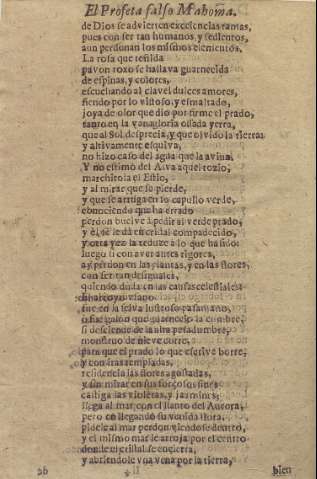 El Profeta falso Mahoma.
de Dios se advierten excelencias tantas,
pues con ser tan humanos, y sedientos,
aun perdonan los mismos elementos.
La rosa que teñida
pavon roxo se hallava guarnecida
de espinas, y colores,
escuchando al clavel dulces amores,
siendo por lo vistoso, y esmaltado,
joya de olor que dio por firme el prado,
tanto en la vanagloria osada yerra,
que al Sol desprecia, y que olvido la tierra
y altivamente esquiva,
no hizo caso del agua que la aviva,
Y no estimò del Alva aquel rozio,
marchitola el Estio,
y al mirar que se pierde,
y que se arruga en lo capullo verde,
conociendo que ha errado
perdon buelve à pedir al verde prado,
y èl, se le dà en cristal compadecido,
y otra vez la reduze à lo que ha sido:
luego si con aver antes rigores,
ay perdon en las plantas, y en las flores,
con ser tan desiguales,
quien duda en las causas celestiales
arroyo ufano,
fue en la selva lustroso passamano,
ò fue galon que guarnece la cumbre,
si desciende de la alta pesadumbre,
monstruo de nieve corre,
para que el prado lo que escrive borre,
y con iras templadas,
residencia las flores agostadas,
y sin mirar en sus forçosos fines
castiga las violetas, y jazmines;
llega al mar con el llanto del Aurora,
pero en llegando su venida llora.
pidele al mar perdon viendose dentro,
y el mismo mar le arroja por el centro
donde el cristal se encierra,
y abriendole una vena por la tierra,
bien